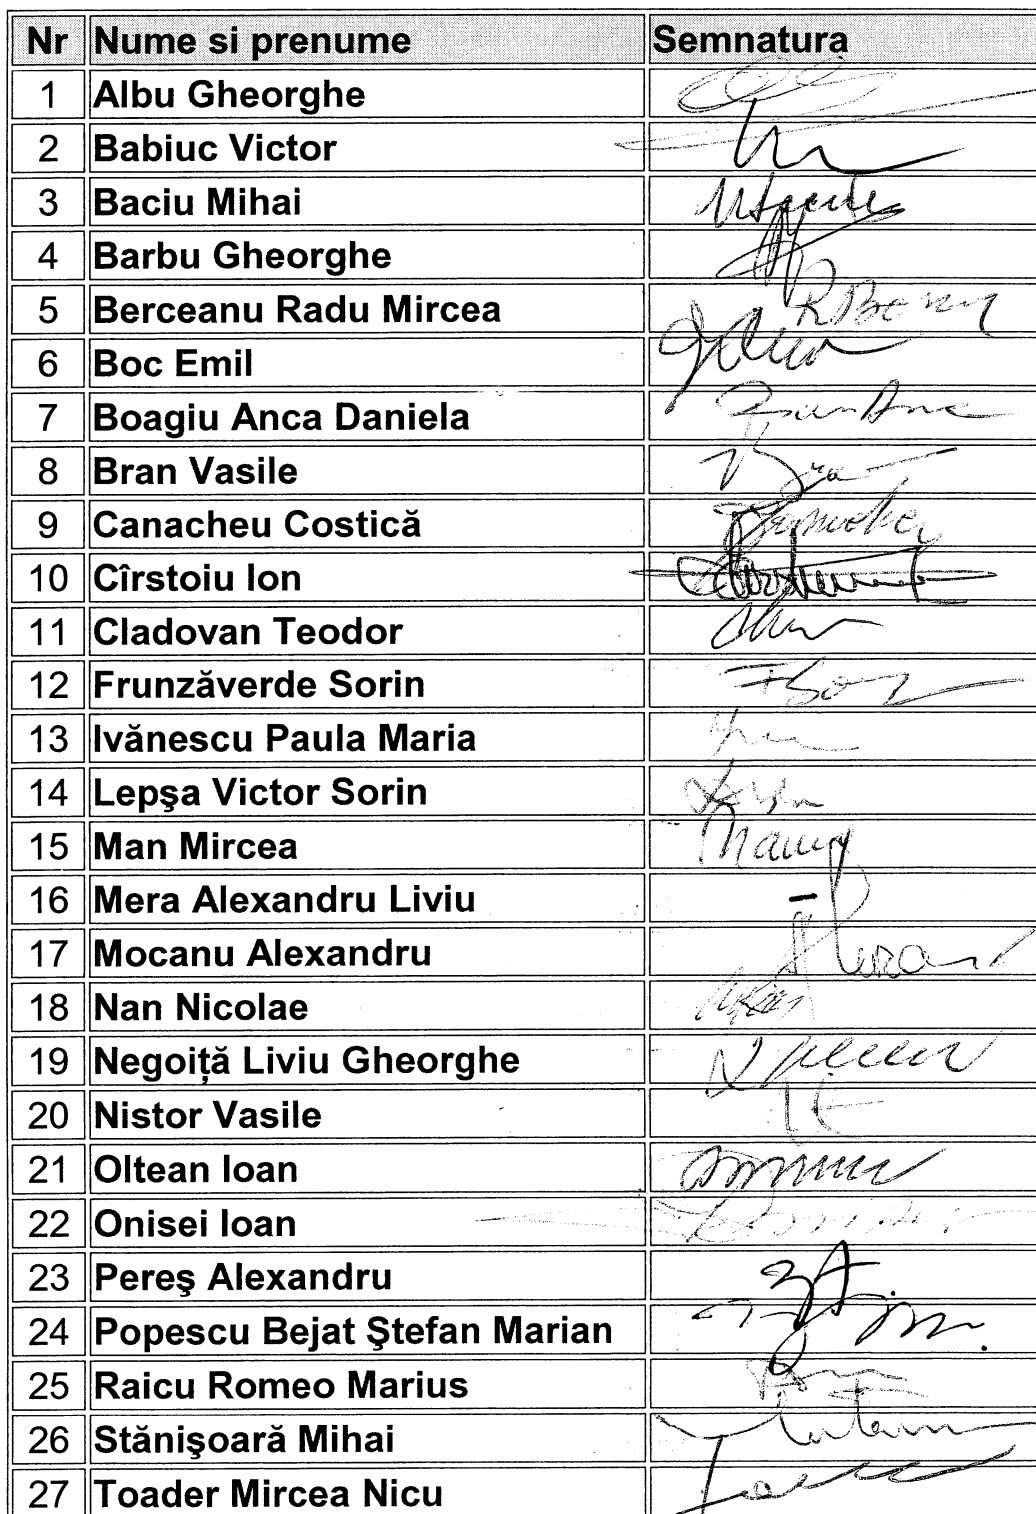 Nr Nume si prenume Semnatura
1 Albu Gheorghe
2 Babiuc Victor
3 Baciu Mihai
4 Barbu Gheorghe
5 Berceanu Radu Mircea
6 Boc Emil
7 Boagiu Anca Daniela
8 Bran Vasile
9 Canacheu Costică
10 Cîrstoiu Ion
11 Cladovan Teodor
12 Frunzăverde Sorin
13 Ivănescu Paula Maria
14 Lepşa Victor Sorin
15 Man Mircea
16 Mera Alexandru Liviu
17 Mocanu Alexandru
18 Nan Nicolae
19 Negoiţă Liviu Gheorghe
20 Nistor Vasile
21 Oltean Ioan
22 Onisei Ioan
23 Pereş Alexandru
24 Popescu Bejat Ştefan Marian
25 Raicu Romeo Marius
26 Stănişoară Mihai
27 Toader Mircea Nicu